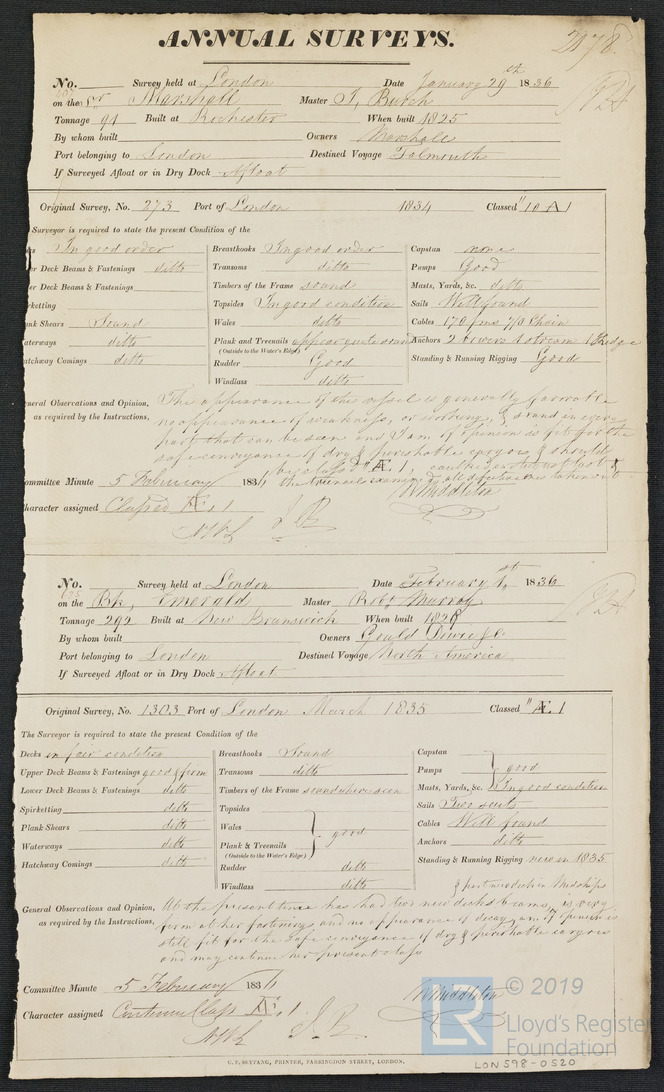 ANNUAL SURVEYS.
No. Survey held at London Date January 29th 1836
on the Sr Marshall Master T. Burch
Tonnage 94 Built at Rochester When built 1825
By whom built Owners Marshall
Port belonging to London Destined Voyage Falmouth
If Surveyed Afloat or in Dry Dock Afloat
Original Survey, No. 273 Port of London 1834 Classed "10 A 1
Surveyor is required to state the present Condition of the
In good order Breasthooks In good order Capstan none
Deck Beams & Fastenings ditto Transoms ditto Pumps Good
Deck Beams & Fastenings Timbers of the Frame sound Masts, Yards, &c. ditto
rketting Topsides In good condition Sails Well found
nk Shears Sound Wales ditto Cables 170 fms 7/8 Chain
aterways ditto Plank and Treenails appear quite sound Anchors 2 bowers 1 stream 1 Kedge
(Outside to the Water's Edge) 
atchway Comings ditto Rudder Good Standing & Running Rigging Good
Windlass ditto
eneral Observations and Opinion, The appearance of this vessel is generally favorable
as required by the Instructions, no appearance of weakness, or working, & sound in every
part that can be seen and I am of opinion is fit for the
safe conveyance of dry & perishable cargoes & should
be classed Æ 1,
ommittee Minute 5 February 183 the treenails examined
haracter assigned Classed Æ 1 W Middleton
No. Survey held at London Date February 1st 1836
on the Bk, Emerald Master Robt Murray
Tonnage 292 Built at New Brunswick When built
By whom built Owners Gould Dowie & Co
Port belonging to London Destined Voyage North America
If Surveyed Afloat or in Dry Dock Afloat
Original Survey, No. 1303 Port of London March 1835 Classed "Æ 1
The Surveyor is required to state the present Condition of the
Decks in fair condition Breasthooks Sound Capstan
Upper Deck Beams & Fastenings good & firm Transoms ditto Pumps good
Lower Deck Beams & Fastenings ditto Timbers of the Frame sound where seen Masts, Yards, &c. In good condition
Spirketting ditto Topsides Sails Two suits
Plank Shears ditto Wales good Cables Well found
Waterways ditto Plank & Treenails Anchors ditto
(Outside to the Water's Edge)
Hatchway Comings ditto Rudder ditto Standing & Running Rigging new in 1835
Windlass ditto
& part new deck in Midships
General Observations and Opinion, At the present time has had two new decks beams, is very
as required by the Instructions, firm at her fastenings and no appearance of decay, am of opinion is
still fit for the safe conveyance of dry & perishable cargoes
and may continue her present class
Committee Minute 5 February 183 W Middleton
Character assigned Continue Class Æ 1
C. F. SEYFANG, PRINTER, FARRINGDON STREET, LONDON.
LR © 2019
Lloyd's Register
Foundation
LON598-0520